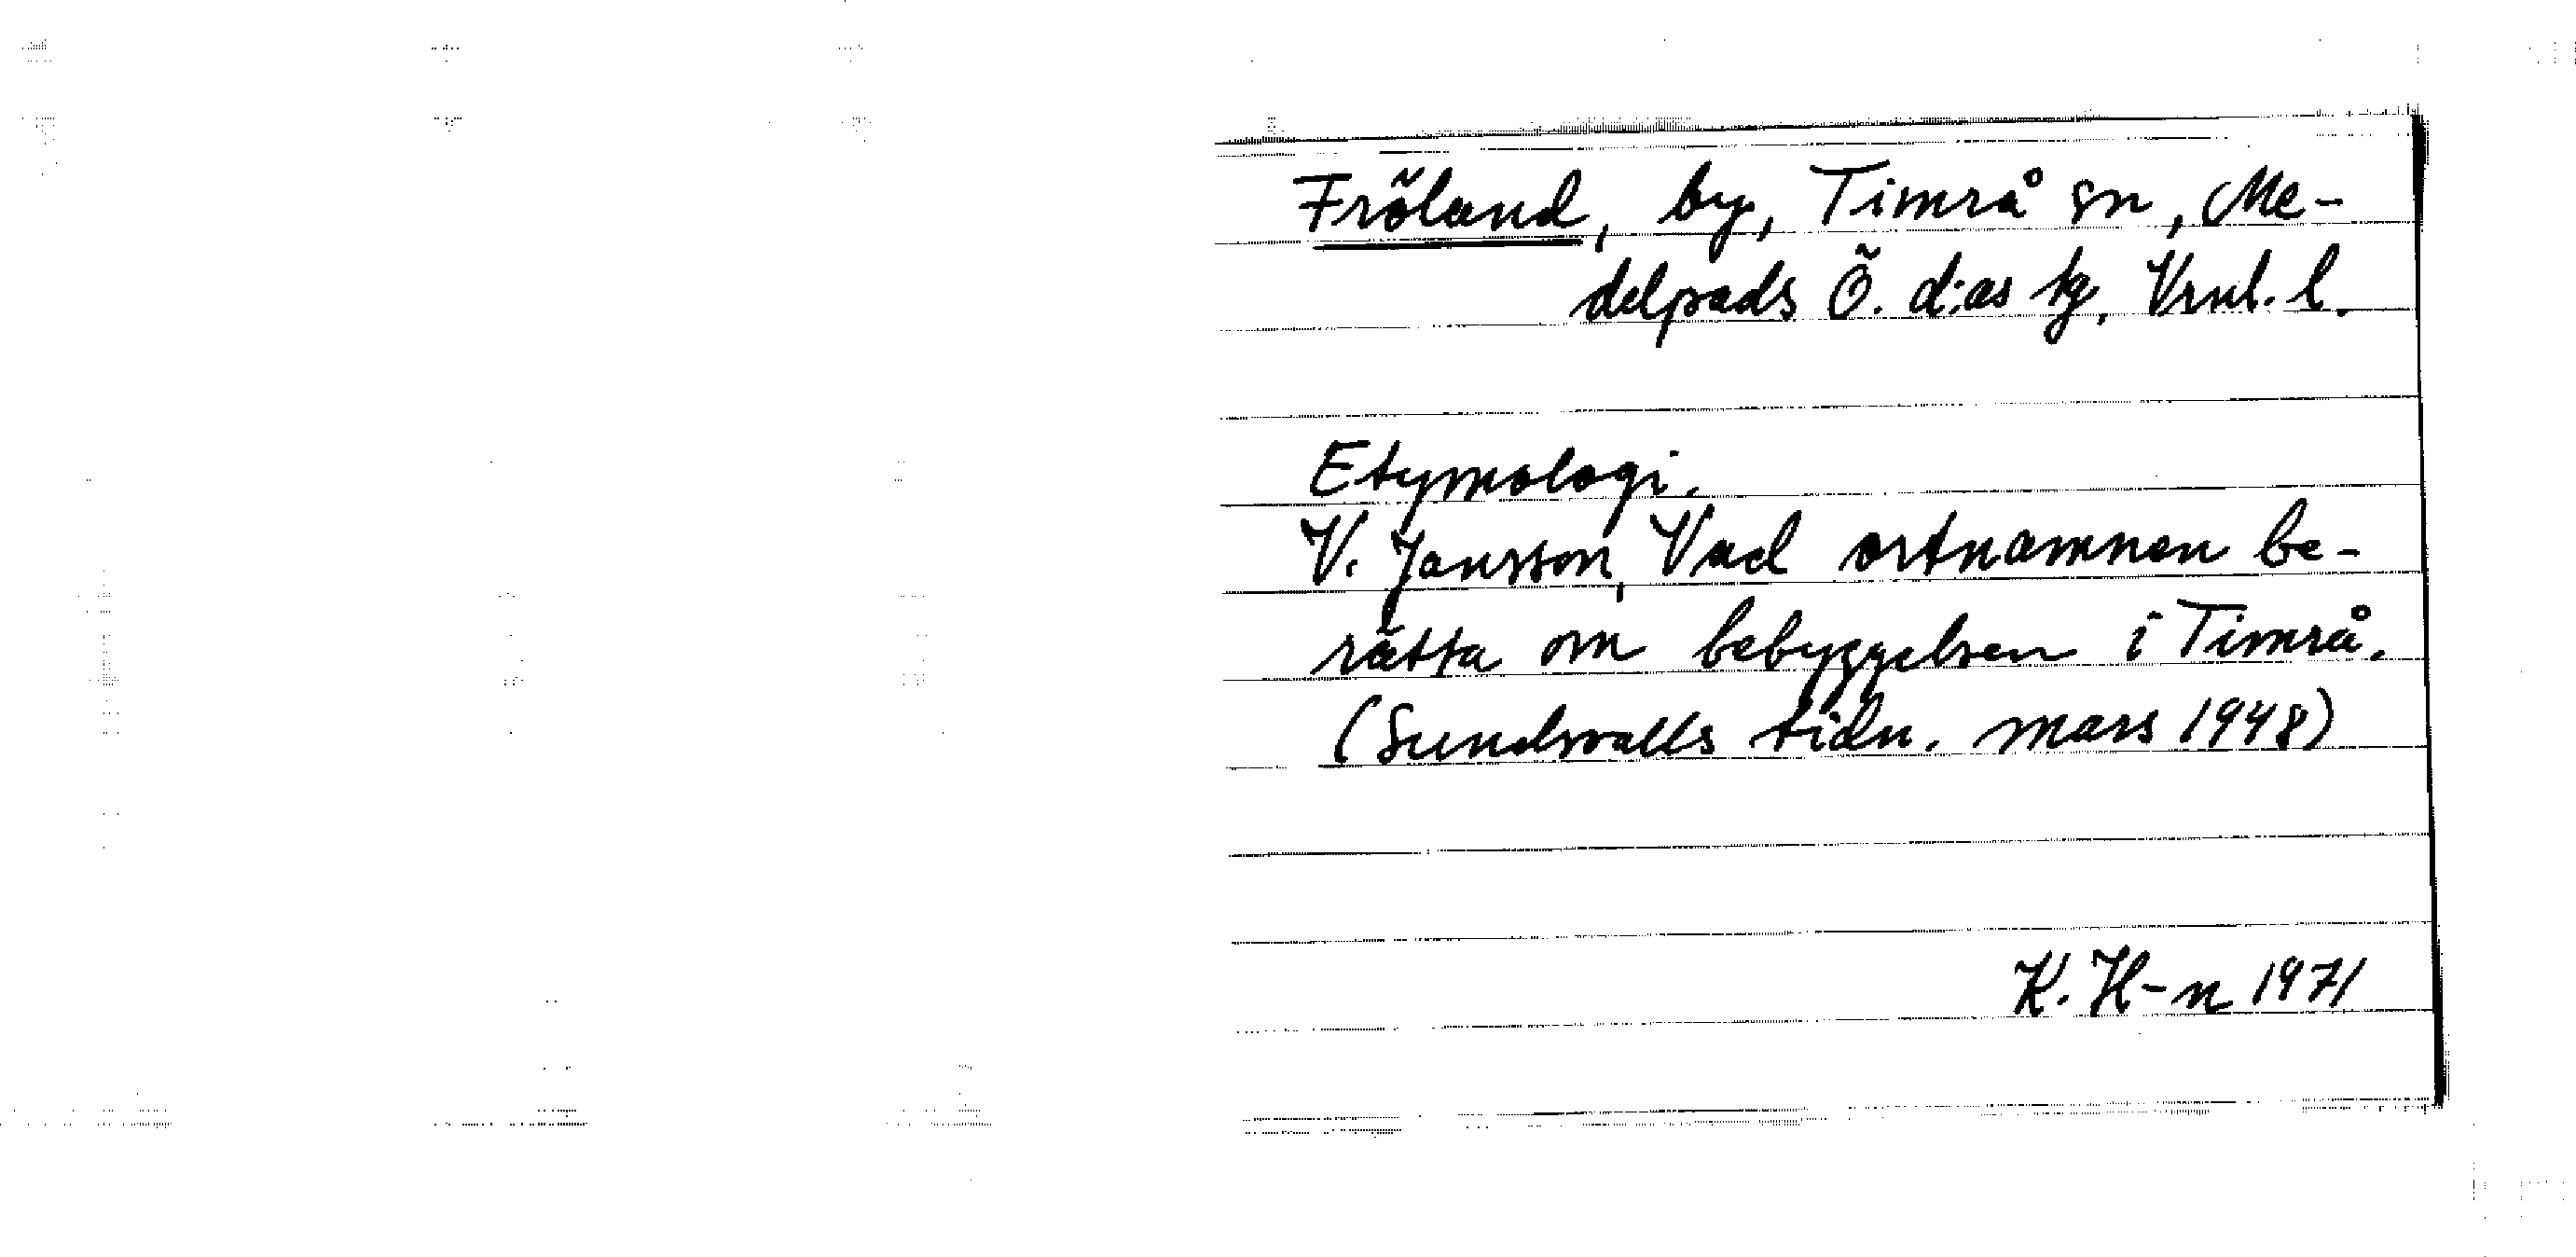 Fröland, by, Timrå sn, Me-
delpads Ö. d:as tg, Vrnl. l.
Etymologi.
V. Jansson, Vad ortnamnen be-
rätta om bebyggelsen i Timrå.
(Sundsvalls tidn. mars 1948)
K. H-n 1971